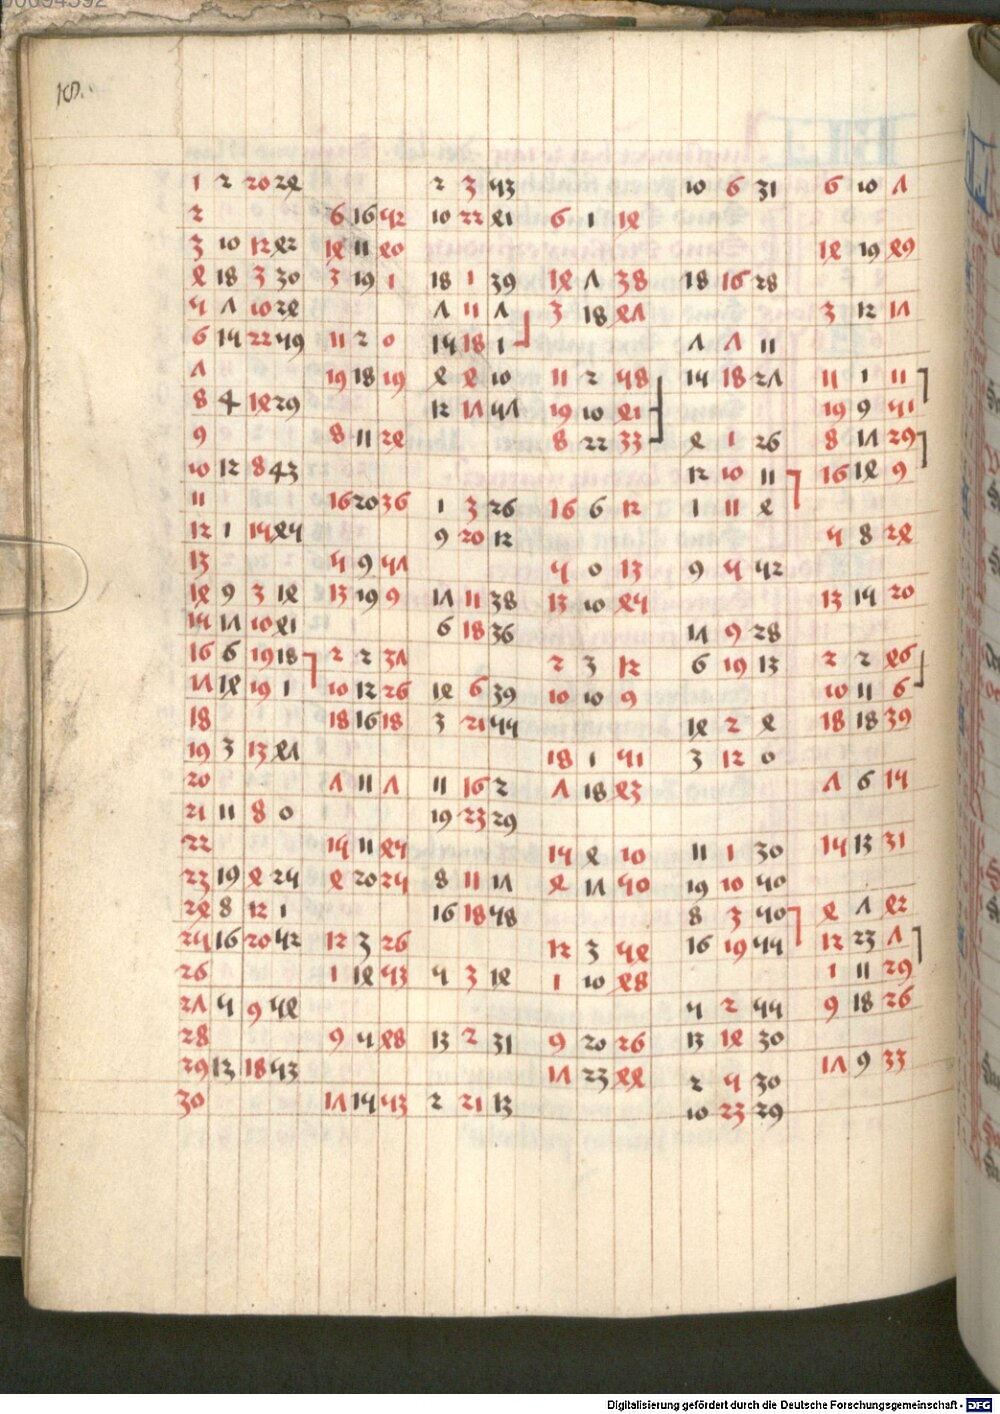 18.
1 2 20 24 2 3 53 10 6 31 6 10 7
2 6 16 52 10 22 41 6 1 14
3 10 12 42 14 11 40 14 19 49
4 18 3 30 3 19 1 18 1 39 14 7 38 18 16 28
5 7 10 24 7 11 7 3 18 47 3 12 17
6 15 22 59 11 2 0 15 18 1 7 7 11
7 19 18 19 4 4 10 11 2 58 15 18 27 11 1 11
8 5 14 29 12 17 57 19 10 41 19 9 51
9 8 11 24 8 22 33 4 1 26 8 17 29
10 12 8 53 12 10 11 16 14 9
11 16 20 36 1 3 26 16 6 12 1 11 4
12 1 15 45 9 20 12 5 8 24
13 5 9 57 5 0 13 9 5 52
14 9 3 14 13 19 9 17 11 38 13 10 45 13 15 20
15 17 10 41 6 18 36 17 9 28
16 6 19 18 2 2 37 2 3 12 6 19 13 2 2 46
17 14 19 1 10 12 26 14 6 39 10 10 9 10 11 6
18 18 16 18 3 21 55 14 2 4 18 18 39
19 3 13 47 18 1 51 3 12 0
20 7 11 7 11 16 2 7 18 43 7 6 15
21 11 8 0 19 23 29
22 15 11 45 15 4 10 11 1 30 15 13 31
23 19 4 25 4 20 25 8 11 17 4 17 50 19 10 50
24 8 12 1 16 18 58 8 3 50 4 7 42
25 16 20 52 12 3 26 12 3 54 16 19 55 12 23 7
26 1 14 53 5 3 14 1 10 48 1 11 29
27 5 9 54 5 2 55 9 18 26
28 9 5 48 13 2 31 9 20 26 13 14 30
29 13 18 53 17 23 44 2 5 30 17 9 33
30 17 15 53 2 21 13 10 23 29
Digitalisierung gefördert durch die Deutsche Forschungsgemeinschaft - DFG